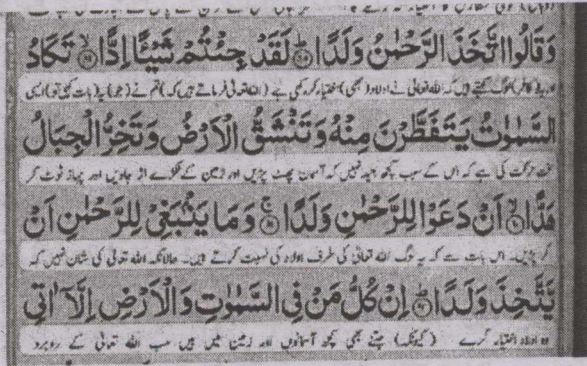 وَقَالُوا اتَّخَذَ الرَّحْمٰنُ وَلَدًا ۝ لَقَدْ جِئْتُمْ شَيْئًا إِدًّا ۝ تَكَادُ
اور یہ (کافر) لوگ کہتے ہیں کہ اللہ تعالیٰ نے اولاد (بھی) اختیار کر رکھی ہے (اللہ تعالیٰ فرماتے ہیں کہ) تم نے (جو) یہ (بات کہی تو) ایسی
السَّمٰوٰتُ يَتَفَطَّرْنَ مِنْهُ وَتَنْشَقُّ الْاَرْضُ وَتَخِرُّ الْجِبَالُ
سخت حرکت کی ہے کہ اس کے سبب کچھ بعید نہیں کہ آسمان پھٹ پڑیں اور زمین کے ٹکڑے اڑ جاویں اور پہاڑ ٹوٹ کر
هَدًّا ۝ اَنْ دَعَوْا لِلرَّحْمٰنِ وَلَدًا ۝ وَمَا يَنْۢبَغِيْ لِلرَّحْمٰنِ اَنْ
گر پڑیں۔ اس بات سے کہ یہ لوگ اللہ تعالیٰ کی طرف اولاد کی نسبت کرتے ہیں۔ حالانکہ اللہ تعالیٰ کی شان نہیں کہ
يَّتَّخِذَ وَلَدًا ۝ اِنْ كُلُّ مَنْ فِي السَّمٰوٰتِ وَالْاَرْضِ اِلَّآ اٰتِي
وہ اولاد اختیار کرے (کیونکہ) جتنے بھی کچھ آسمانوں اور زمین میں ہیں سب اللہ تعالیٰ کے روبرو